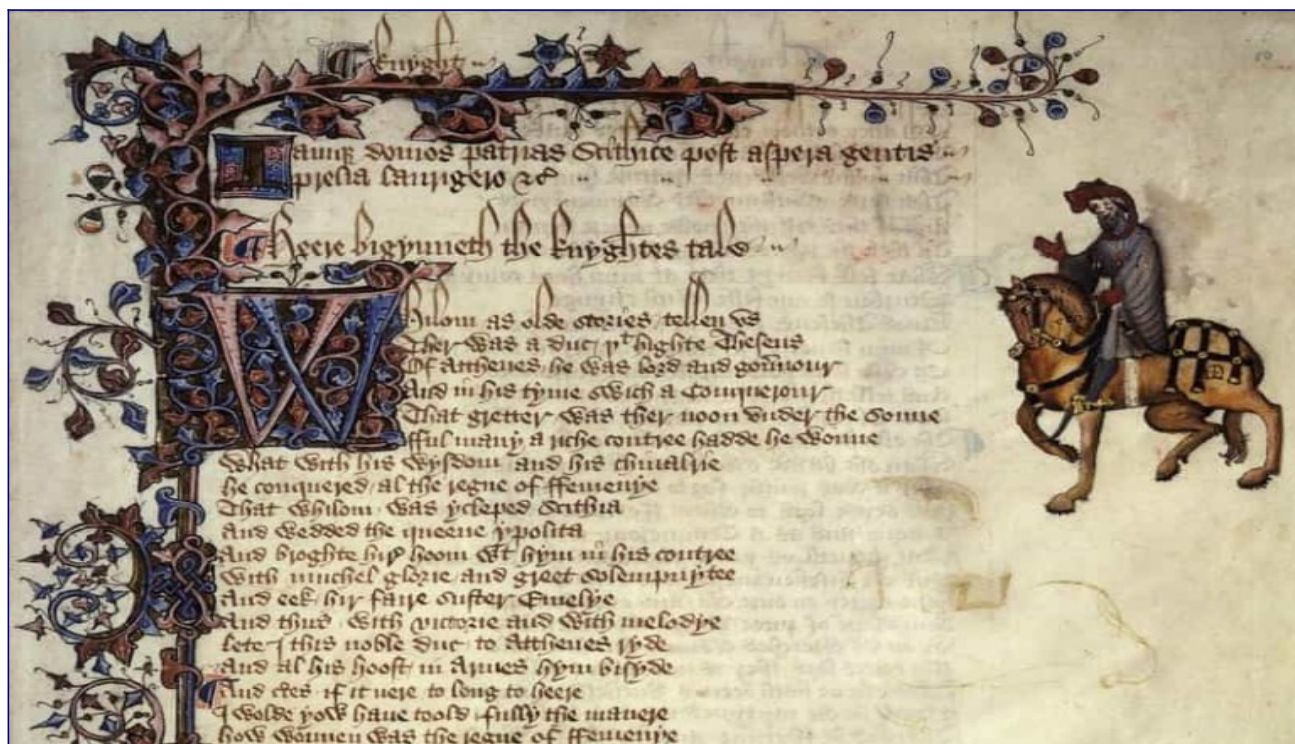 Knyght
Iamqꝫ domos patrias Scithice post aspera gentis
prelia laurigero ⁊c̄
Heere bigynneth the knyghtes tale
Whilom as olde stories tellen vs
Ther was a duc þᵗ highte Theseus
Of Atthenes he was lord and gou̾nour
And in his tyme swich a Conquerour
That gretter was ther noon vnder the sonne
fful many a riche contree hadde he wonne
What with his wysdom and his chiualrie
he conquered al the regne of ffemenye
That whilom was ycleped Scithia
And wedded the queene ypolita
And broghte hir hoom wᵗ hym in his contree
With muchel glorie and greet solempnytee
And eek hir faire suster Emelye
And thus with victorie and with melodye
lete I this noble duc to Atthenes ryde
And al his hoost in Armes hym bisyde
And certes if it nere to long to heere
I wolde yow haue toold fully the manere
how wonnen was the regne of ffemenye